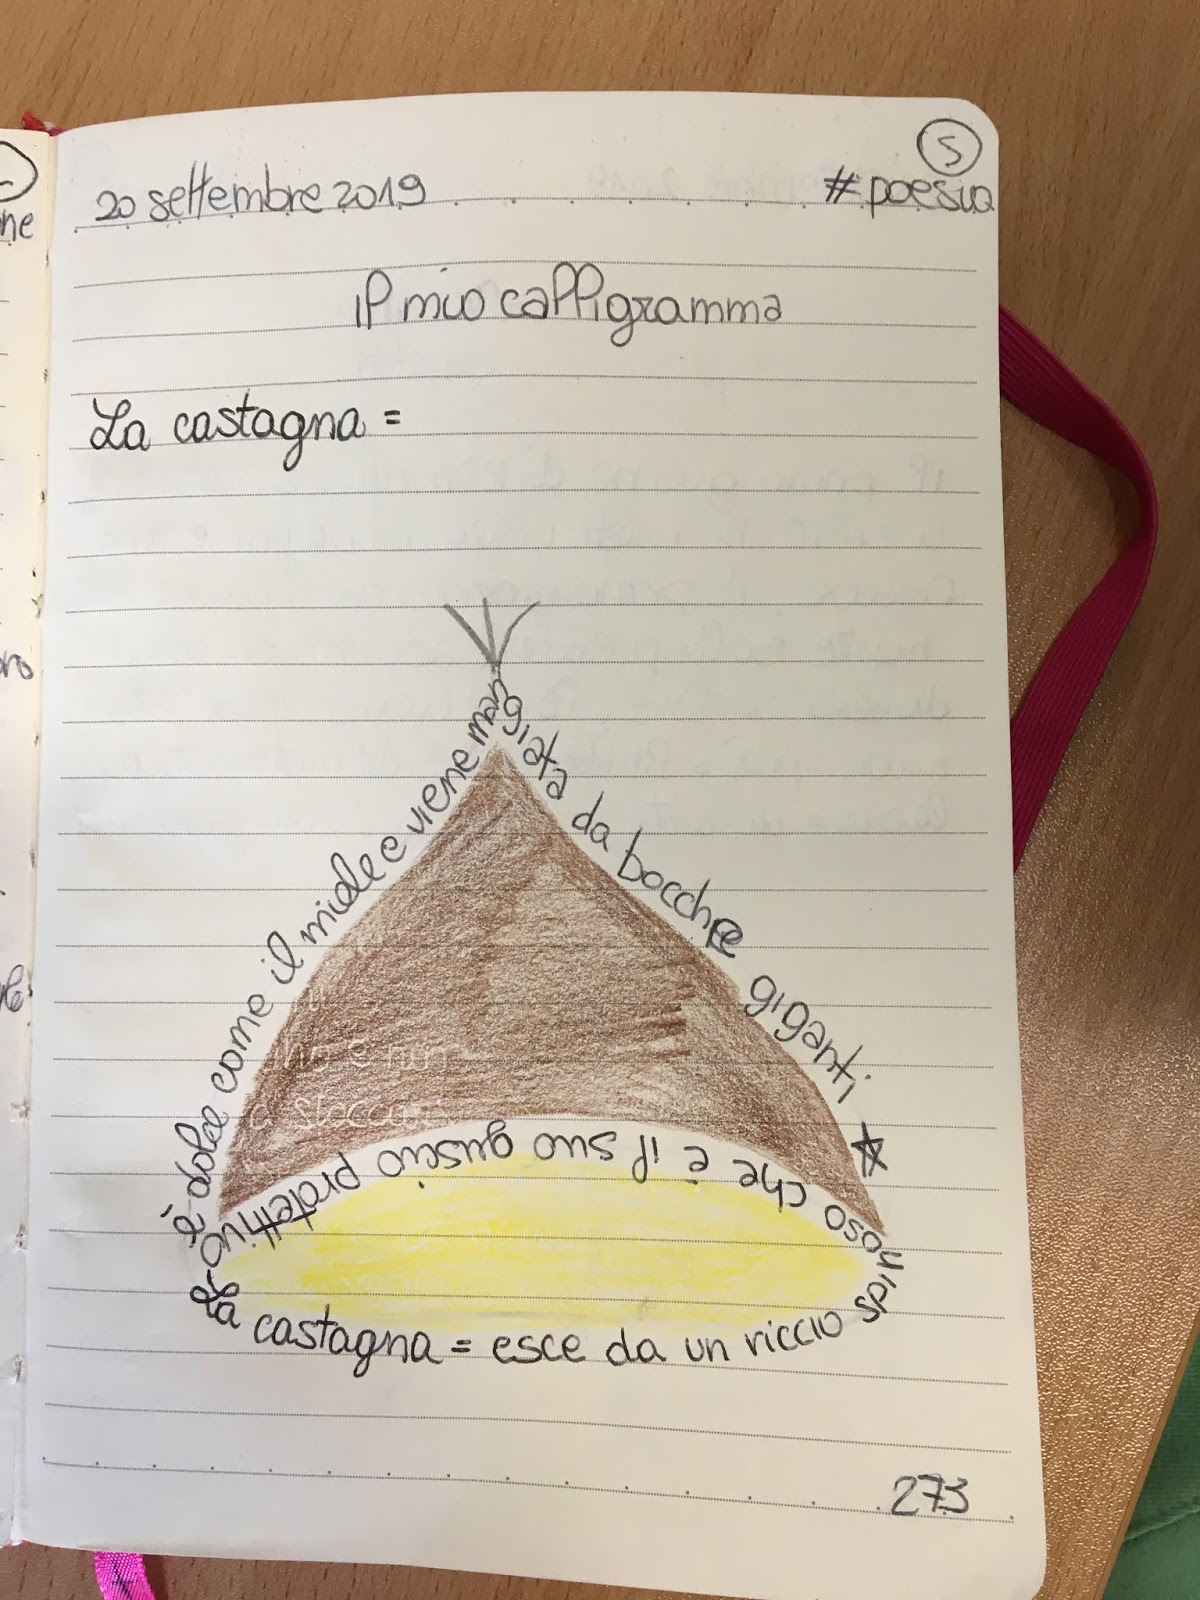 S
20 settembre 2019 #poesia
il mio calligramma
La castagna =
La castagna = esce da un riccio spinoso che è il suo guscio protettivo, è dolce come il miele e viene mangiata da bocche giganti
273